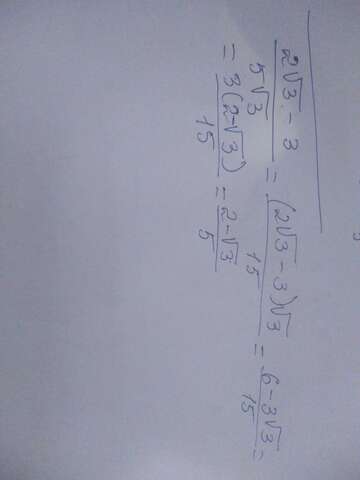 (2√3 - 3)/(5√3) = ((2√3 - 3)√3)/15 = (6 - 3√3)/15 =
= (3(2-√3))/15 = (2-√3)/5